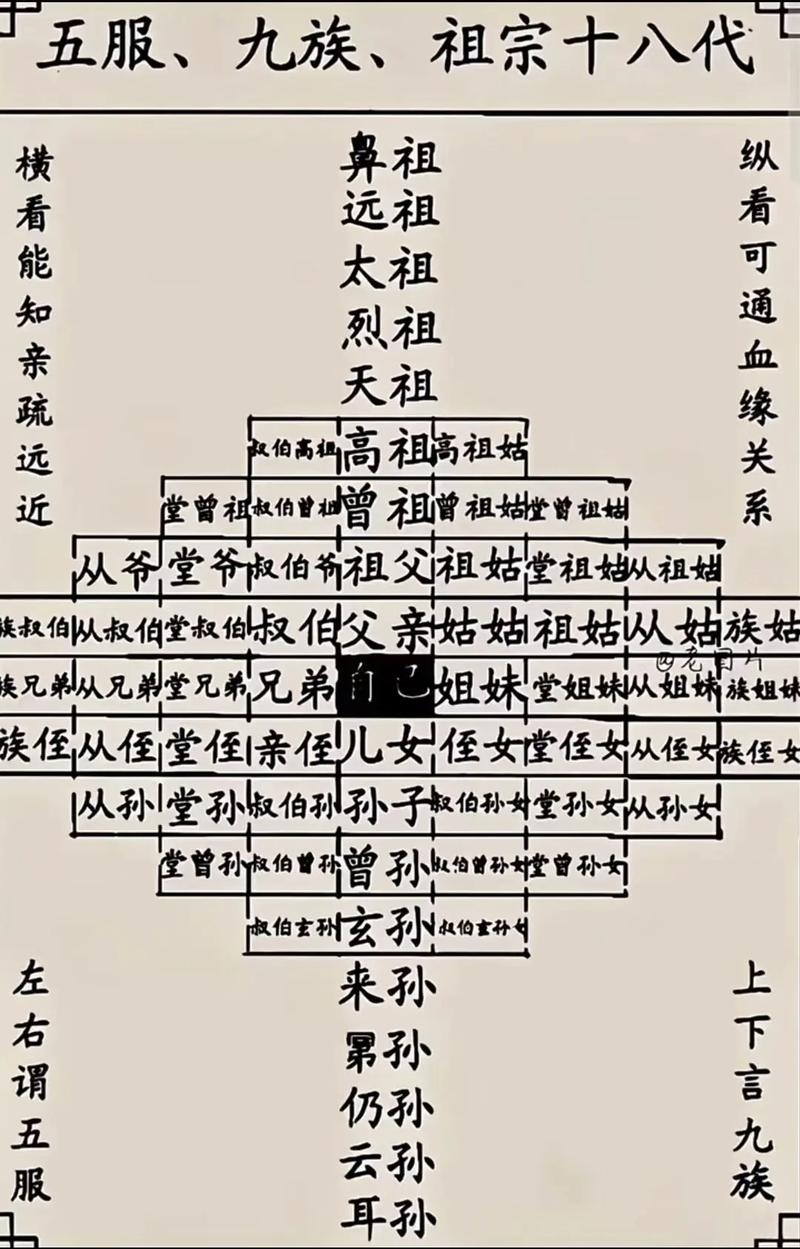 五服、九族、祖宗十八代
横看能知亲疏远近
纵看可通血缘关系
鼻祖
远祖
太祖
烈祖
天祖
叔伯高祖 高祖 高祖姑
堂曾祖 叔伯曾祖 曾祖 曾祖姑 堂曾祖姑
从爷 堂爷 叔伯爷 祖父 祖姑 堂祖姑 从祖姑
族叔伯 从叔伯 堂叔伯 叔伯 父亲 姑姑 祖姑 从姑 族姑
族兄弟 从兄弟 堂兄弟 兄弟 自己 姐妹 堂姐妹 从姐妹 族姐妹
族侄 从侄 堂侄 亲侄 儿女 侄女 堂侄女 从侄女 族侄女
从孙 堂孙 叔伯孙 孙子 叔伯孙女 堂孙女 从孙女
堂曾孙 叔伯曾孙 曾孙 叔伯曾孙女 堂曾孙女
叔伯玄孙 玄孙 叔伯玄孙女
来孙
晜孙
仍孙
云孙
耳孙
左右谓五服
上下言九族
@老图片